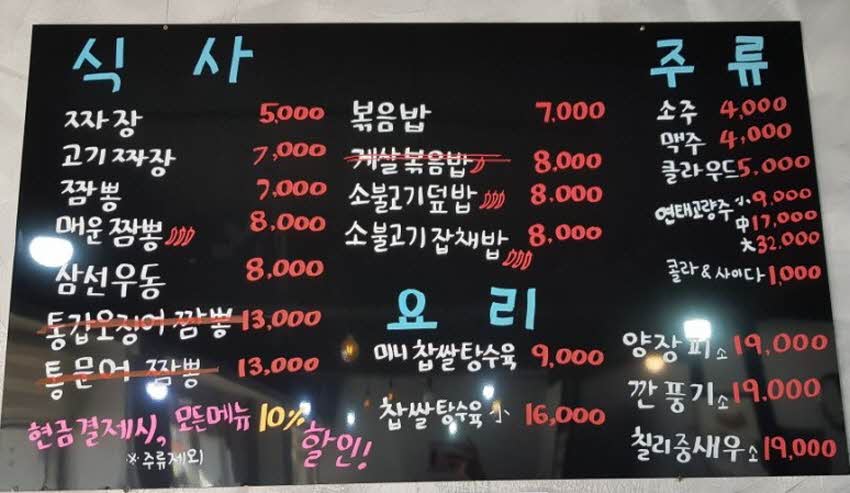 식 사
짜장 5,000
고기짜장 7,000
짬뽕 7,000
매운짬뽕 8,000
삼선우동 8,000
통갑오징어 짬뽕 13,000
통문어 짬뽕 13,000
현금결제시, 모든메뉴 10% 할인!
※주류제외
볶음밥 7,000
게살볶음밥 8,000
소불고기덮밥 8,000
소불고기잡채밥 8,000
요 리
미니 찹쌀탕수육 9,000
찹쌀탕수육 小 16,000
주 류
소주 4,000
맥주 4,000
클라우드 5,000
연태고량주 小 9,000
中 17,000
大 32,000
콜라&사이다 1,000
양장피 소 19,000
깐풍기 소 19,000
칠리중새우 소 19,000